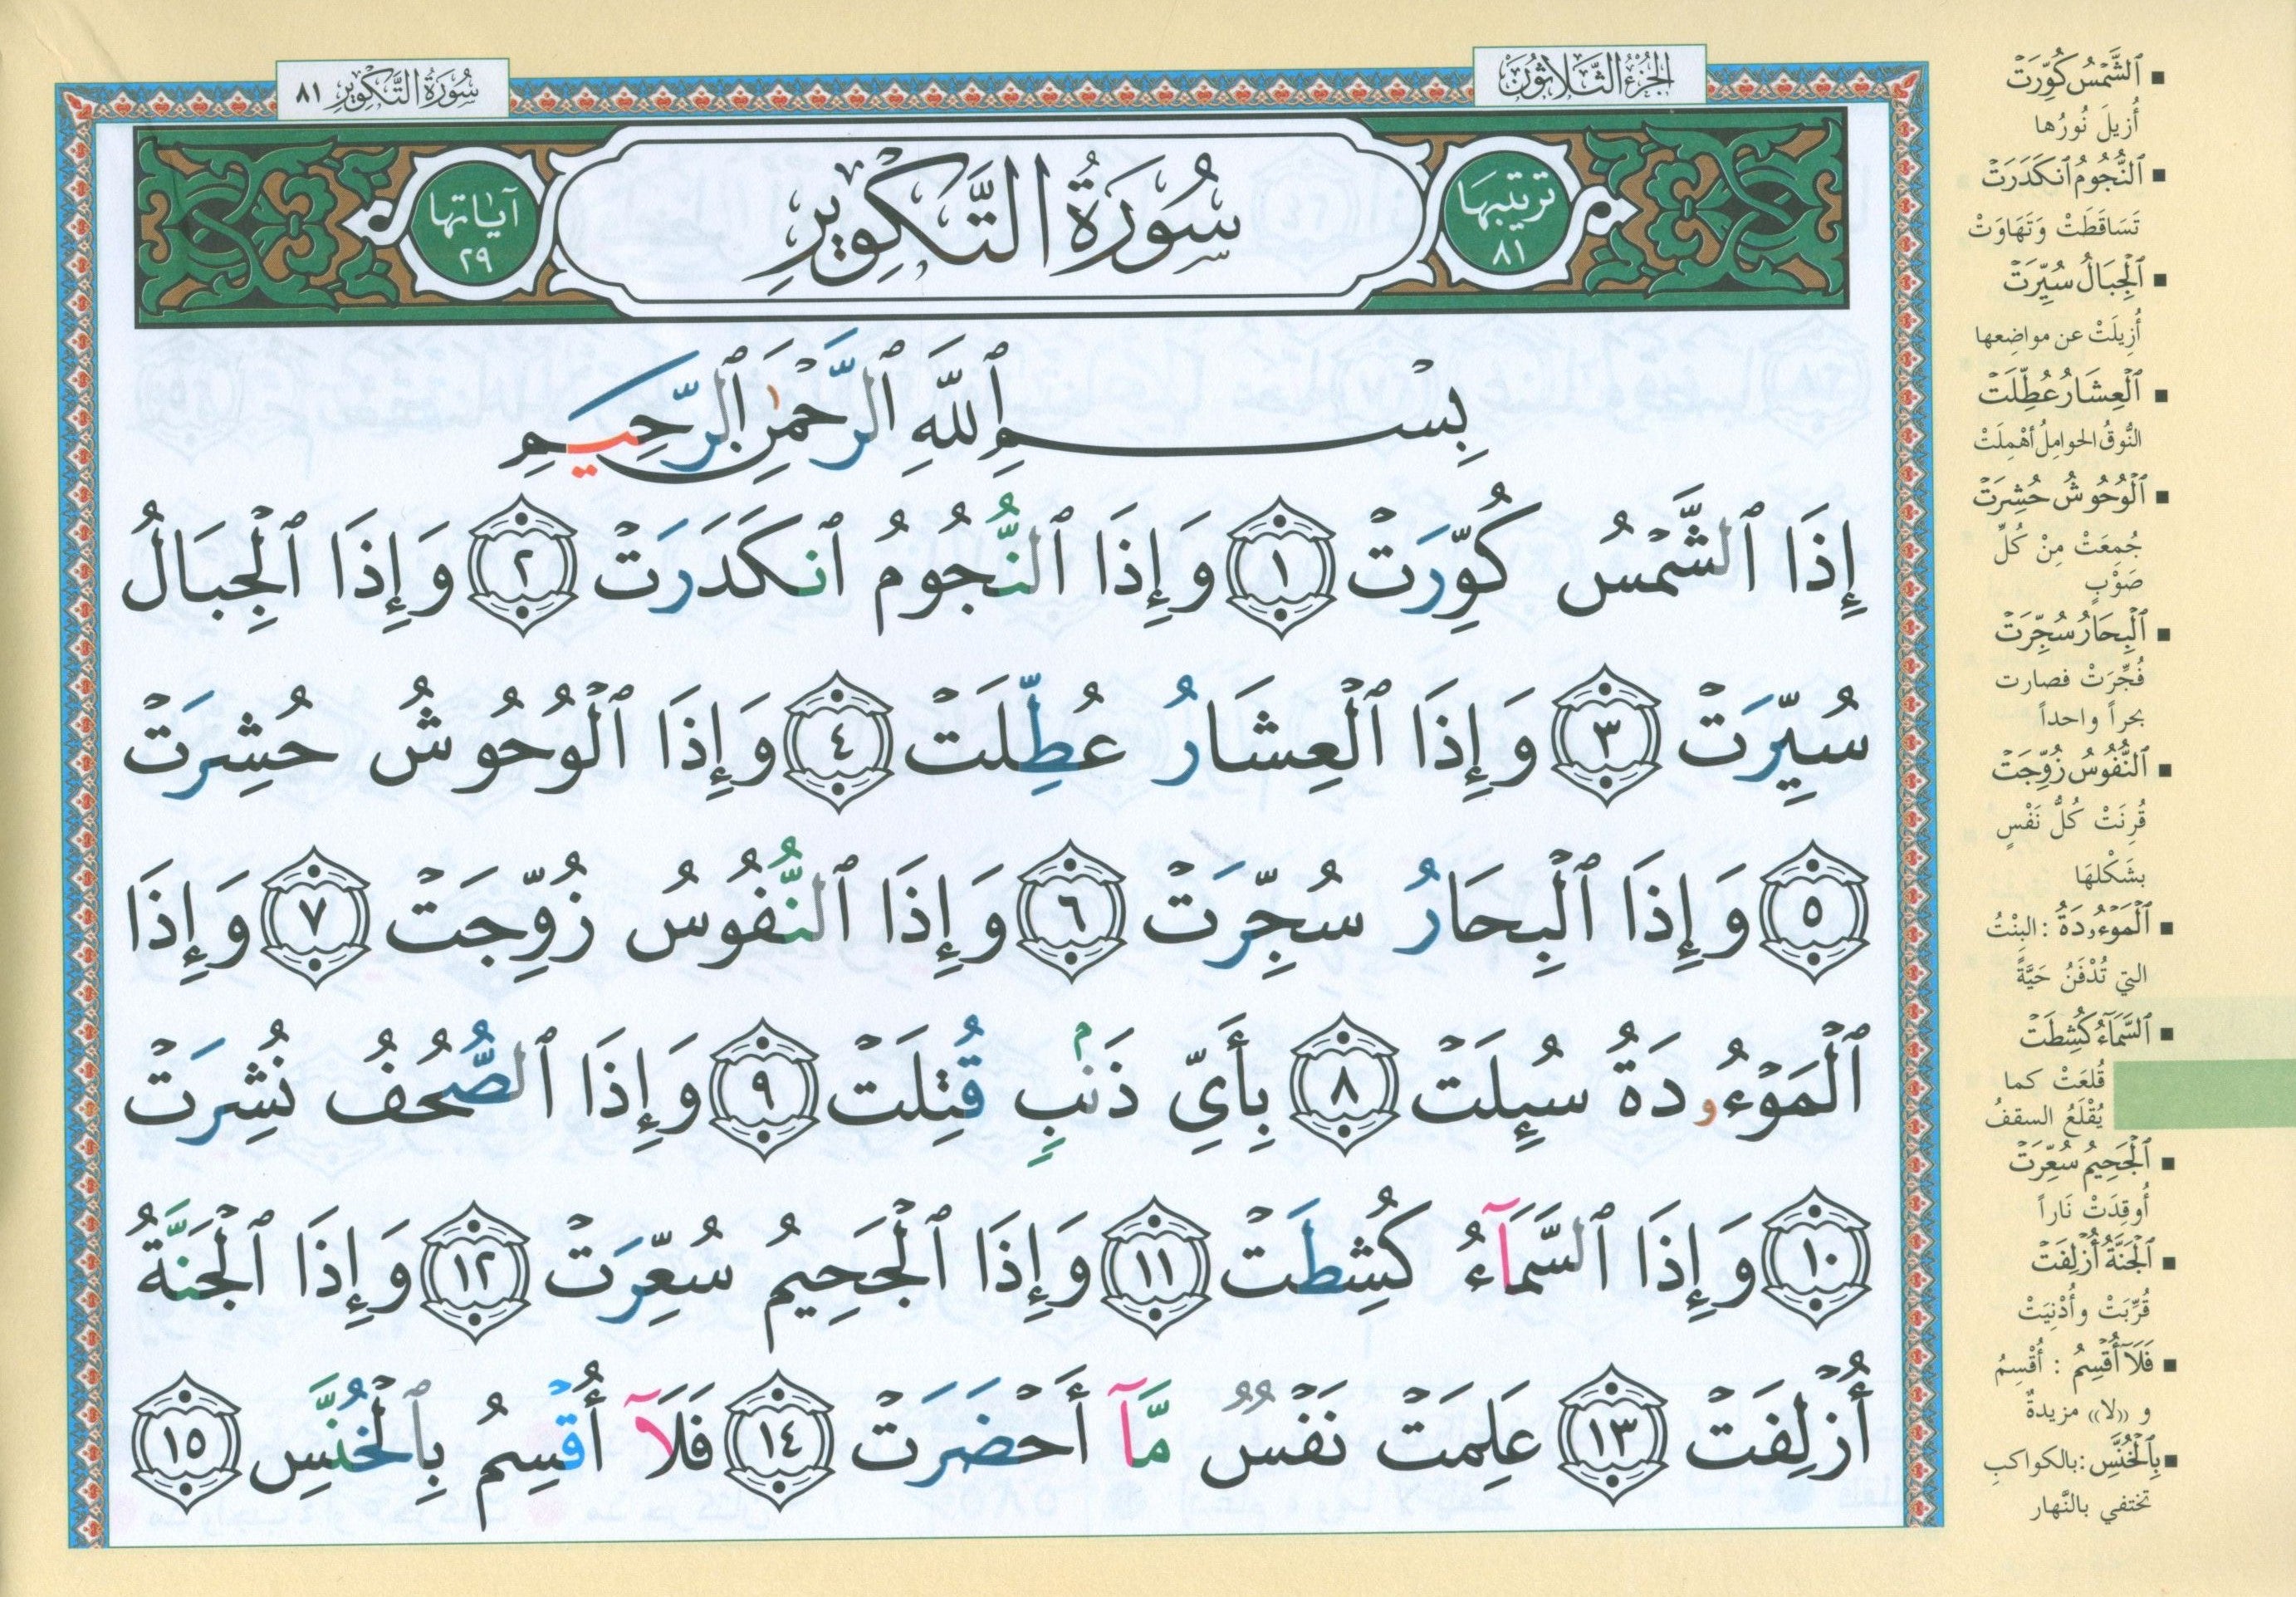 الجُزْءُ الثَّلَاثُونَ
سُورَةُ التَّكْوِيرِ ٨١
ترتيبها
٨١
سُورَةُ التَّكْوِيرِ
آياتها
٢٩
بِسْمِ ٱللَّهِ ٱلرَّحْمَٰنِ ٱلرَّحِيمِ
إِذَا ٱلشَّمْسُ كُوِّرَتْ ١ وَإِذَا ٱلنُّجُومُ ٱنكَدَرَتْ ٢ وَإِذَا ٱلْجِبَالُ
سُيِّرَتْ ٣ وَإِذَا ٱلْعِشَارُ عُطِّلَتْ ٤ وَإِذَا ٱلْوُحُوشُ حُشِرَتْ
٥ وَإِذَا ٱلْبِحَارُ سُجِّرَتْ ٦ وَإِذَا ٱلنُّفُوسُ زُوِّجَتْ ٧ وَإِذَا
ٱلْمَوْءُۥدَةُ سُئِلَتْ ٨ بِأَىِّ ذَنۢبٍ قُتِلَتْ ٩ وَإِذَا ٱلصُّحُفُ نُشِرَتْ
١٠ وَإِذَا ٱلسَّمَآءُ كُشِطَتْ ١١ وَإِذَا ٱلْجَحِيمُ سُعِّرَتْ ١٢ وَإِذَا ٱلْجَنَّةُ
أُزْلِفَتْ ١٣ عَلِمَتْ نَفْسٌ مَّآ أَحْضَرَتْ ١٤ فَلَآ أُقْسِمُ بِٱلْخُنَّسِ ١٥
▪ ٱلشَّمْسُ كُوِّرَتْ
أُزِيلَ نُورُها
▪ ٱلنُّجُومُ ٱنكَدَرَتْ
تَسَاقَطَتْ وَتَهَاوَتْ
▪ ٱلْجِبَالُ سُيِّرَتْ
أُزِيلَتْ عن مواضِعها
▪ ٱلْعِشَارُ عُطِّلَتْ
النُّوقُ الحوامِلُ أُهْمِلَتْ
▪ ٱلْوُحُوشُ حُشِرَتْ
جُمِعَتْ مِنْ كُلِّ
صَوْبٍ
▪ ٱلْبِحَارُ سُجِّرَتْ
فُجِّرَتْ فصارت
بحراً واحداً
▪ ٱلنُّفُوسُ زُوِّجَتْ
قُرِنَتْ كُلُّ نَفْسٍ
بشَكْلهَا
▪ ٱلْمَوْءُۥدَةُ : البِنْتُ
التي تُدْفَنُ حَيَّةً
▪ ٱلسَّمَآءُ كُشِطَتْ
قُلعَتْ كما
يُقْلَعُ السقفُ
▪ ٱلْجَحِيمُ سُعِّرَتْ
أُوقِدَتْ نَاراً
▪ ٱلْجَنَّةُ أُزْلِفَتْ
قُرِّبَتْ وأُدْنِيَتْ
▪ فَلَآ أُقْسِمُ : أُقْسِمُ
و «لا» مزيدةٌ
▪ بِٱلْخُنَّسِ : بالكواكبِ
تختفي بالنَّهار